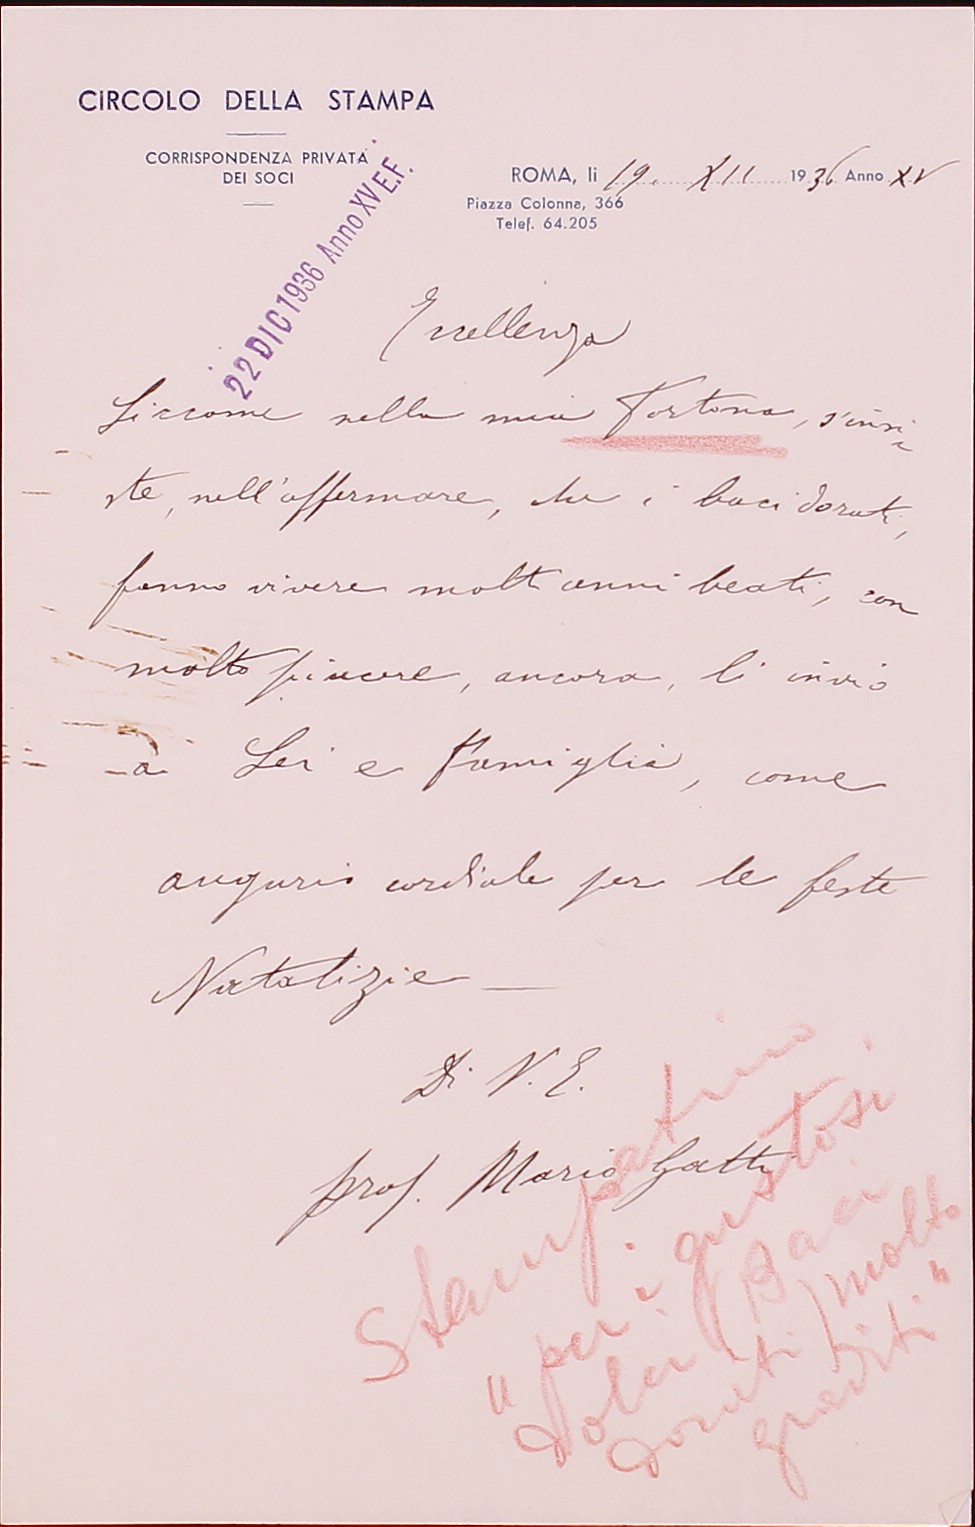 CIRCOLO DELLA STAMPA
CORRISPONDENZA PRIVATA
DEI SOCI
ROMA, li 19. XII 1936 Anno XV
Piazza Colonna, 366
Telef. 64.205
22 DIC 1936 Anno XV E.F.
Eccellenza
Siccome nella mia Tortona, s'insi-
ste, nell'affermare, che i baci dorati,
fanno vivere molti anni beati, con
molto piacere, ancora, li invio
a Lei e Famiglia, come
augurio cordiale per le feste
Natalizie —
Di V. E.
prof. Mario Gatti
Stampatino
"per i gustosi
dolci (Baci
dorati) molto
graditi"